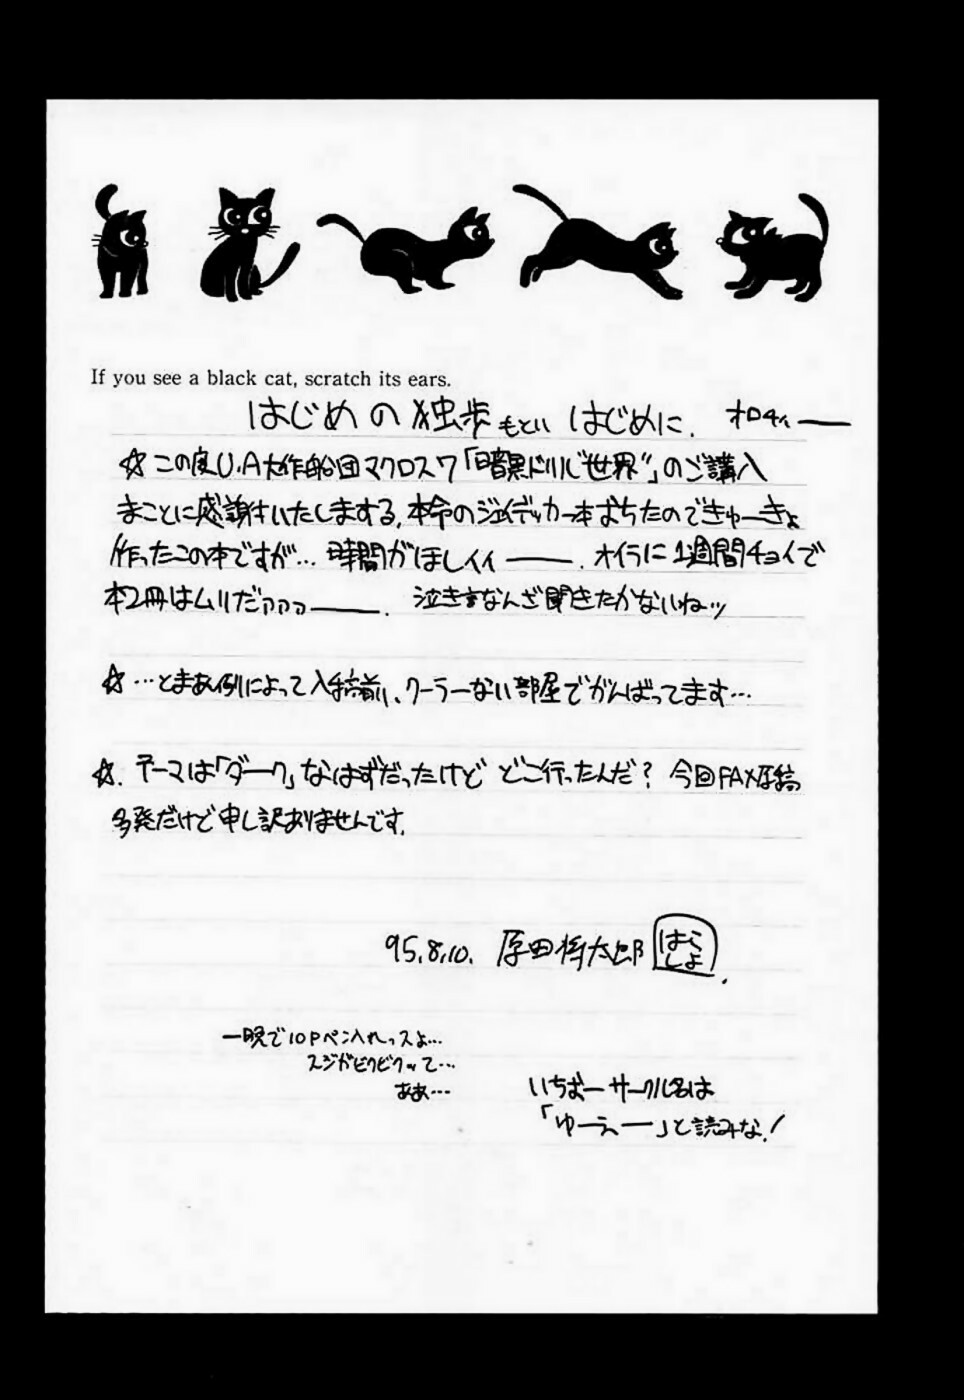 If you see a black cat, scratch its ears.
はじめの独歩 もとい はじめに. オロチィ——
☆この度U.A大作船団マクロス7「暗黒ドリル世界"」のご講入
まことに感謝いたしまする,本命のジェイデッカー本おちたのできゅーきょ
作ったこの本ですが… 時間がほしィィ——. オイラに1週間チョイで
本2冊はムリだァァァ——. 泣き言なんざ聞きたかないねッ
☆…とまあ例によって入稿前、クーラーない部屋でがんばってます…
☆. テーマは「ダーク」なはずだったけど どこ行ったんだ? 今回FAX原稿
多発だけど申し訳ありませんです.
95.8.10. 原田将太郎 はらしょ.
一晩で10Pペン入れっスよ…
スジがピクピクッて…
ああ…
いちおーサークル名は
「ゆーえー」と読みな!